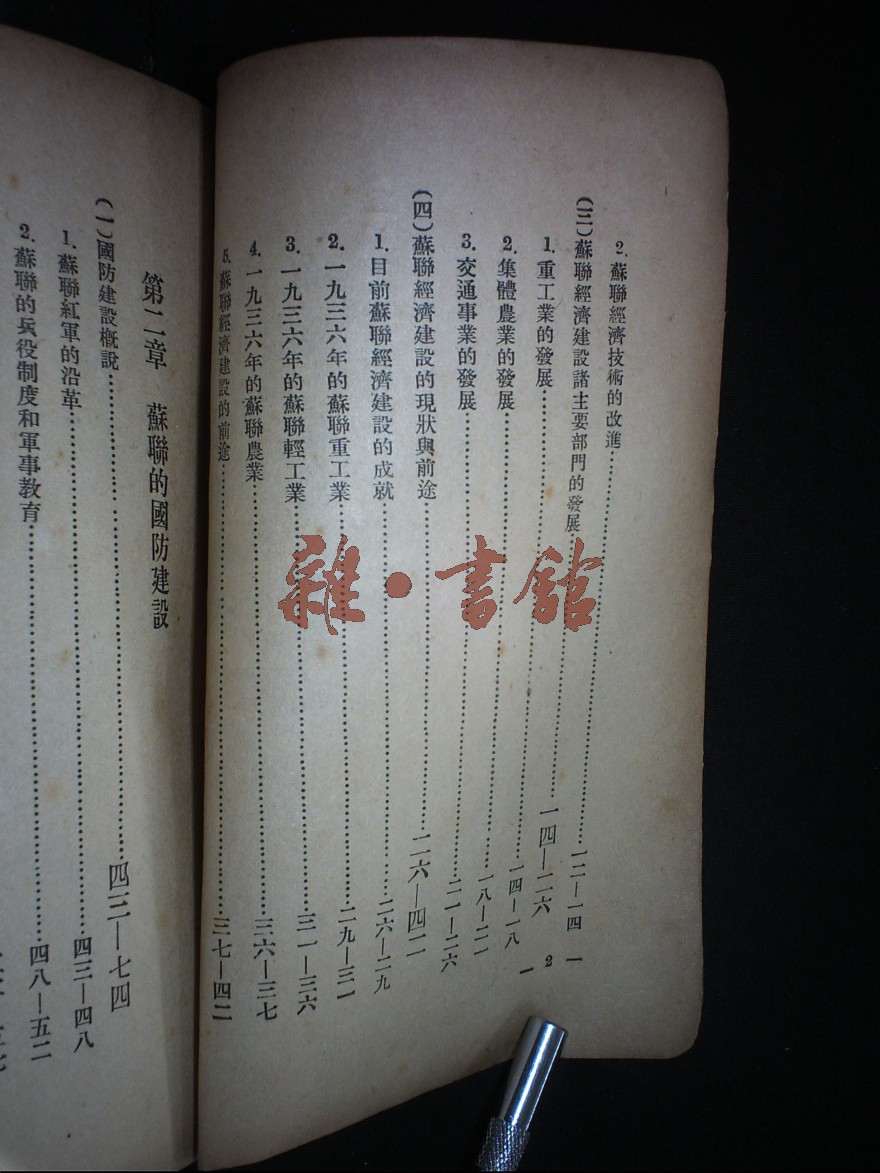 2. 蘇聯經濟技術的改進……一二—一四
(三)蘇聯經濟建設諸主要部門的發展……一四—二六
1. 重工業的發展……一四—一八
2. 集體農業的發展……一八—二一
3. 交通事業的發展……二一—二六
(四)蘇聯經濟建設的現狀與前途……二六—四二
1. 目前蘇聯經濟建設的成就……二六—二九
2. 一九三六年的蘇聯重工業……二九—三一
3. 一九三六年的蘇聯輕工業……三一—三六
4. 一九三六年的蘇聯農業……三六—三七
5. 蘇聯經濟建設的前途……三七—四二
— 2 —
第二章 蘇聯的國防建設
(一)國防建設概說……四三—七四
1. 蘇聯紅軍的沿革……四三—四八
2. 蘇聯的兵役制度和軍事教育……四八—五二
雜·書館